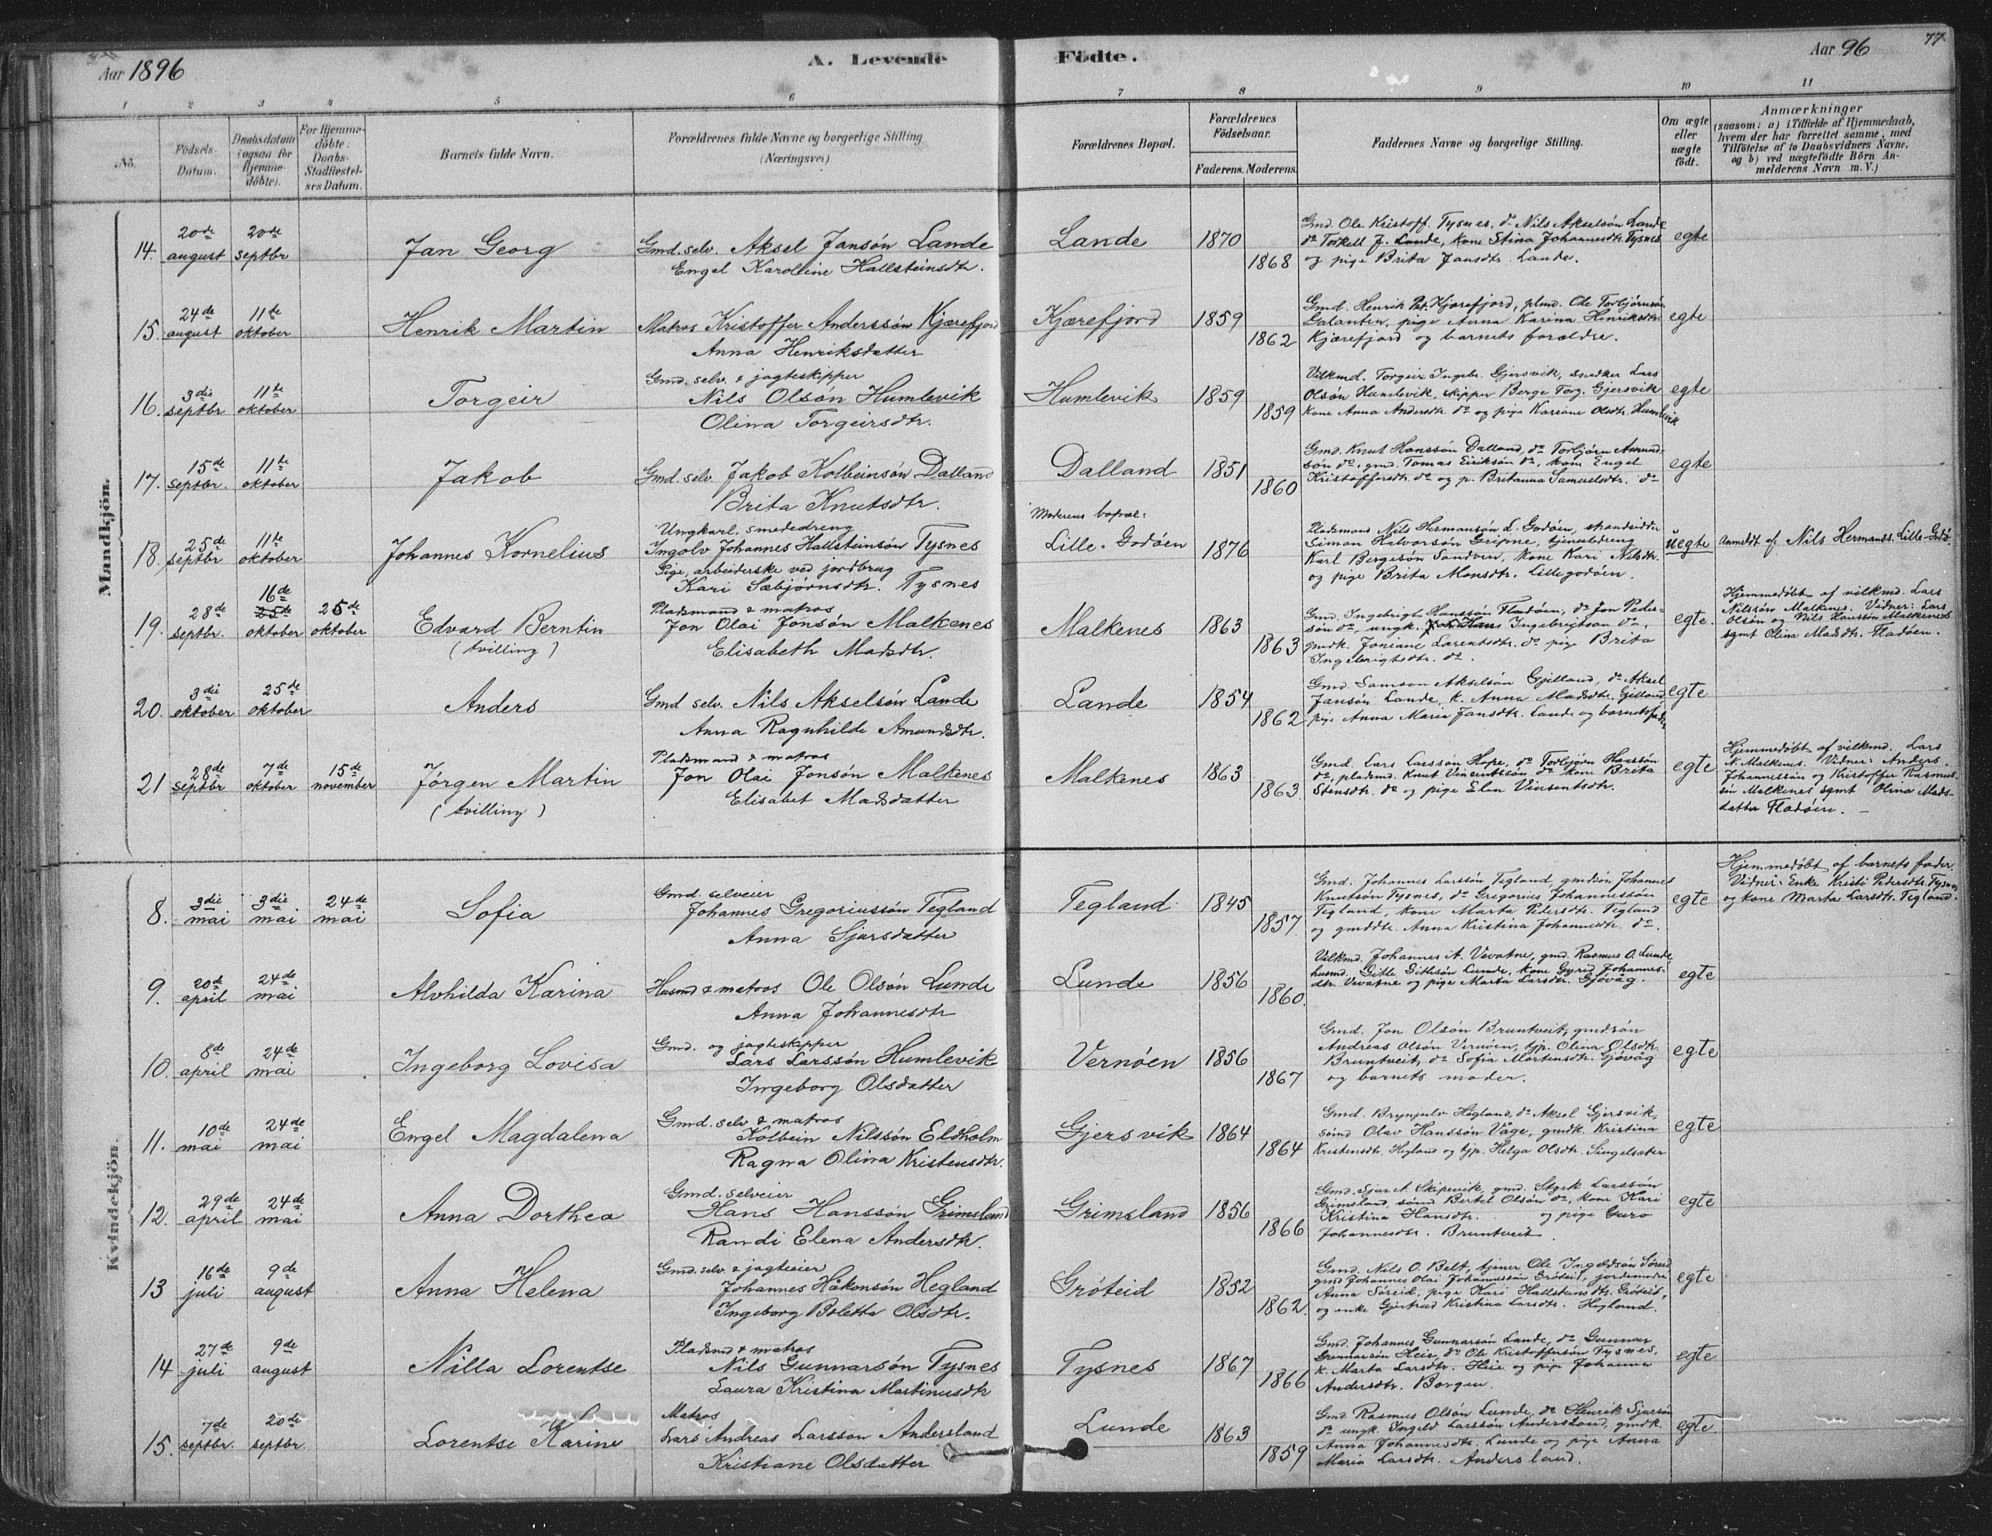 Aar 1896
A. Levende
Födte.
Aar 96
77
1 2 3 4 5 6 7 8 9 10 11
No.
Födsels-Datum.
Daabsdatum (ogsaa for Hjemmedöbte).
For Hjemmedöbte: Daabs-Stadfæstelses Datum.
Barnets fulde Navn.
Forældrenes fulde Navne og borgerlige Stilling (Næringsvei)
Forældrenes Bopæl.
Forældrenes Födselsaar.
Faderens. Moderens.
Faddernes Navne og borgerlige Stilling.
Om ægte eller uægte födt.
Anmærkninger
(saasom: a) i Tilfælde af Hjemmedaab, hvem der har forrettet samme, med Tilföielse af to Daabsvidners Navne, og b) ved uægtefödte Börn Anmelderens Navn m. V.)
Mandkjön.
14. 20de august 20de septbr
Jan Georg
Gmd. selv. Aksel Jansøn Lande
Engel Karoline Hallsteinsdtr.
Lande 1870 1868
Gmd. Ole Kristoff. Tysnes, do Nils Akselsøn Lande
do Torkell J. Lande, kone Stina Johannesdtr Tysnes
og pige Brita Jansdtr. Lande.
egte
15. 24de august 11te oktober
Henrik Martin
Matros Kristoffer Anderssøn Kjærefjord
Anna Henriksdatter
Kjærefjord 1859 1862
Gmd. Henrik Pet. Kjærefjord, plmd. Ole Torbjørnsøn
Galanten, pige Anna Karina Henriksdtr.
Kjærefjord og barnets forældre.
egte
16. 3die septbr 11te oktober
Torgeir
Gmd. selv. & jagteskipper
Nils Olsøn Humlevik
Olina Torgeirsdtr.
Humlevik 1859 1859
Vilkmd. Torgeir Ingebr. Gjersvik, snedker Lars
Olsøn Humlevik, skipper Berge Torg. Gjersvik
kone Anna Andersdtr. do og pige Kariane Olsdtr. Humlevik
egte
17. 15de septbr. 11te oktober
Jakob
Gmd. selv. Jakob Kolbeinsøn Dalland
Brita Knutsdtr.
Dalland 1851 1860
Gmd. Knut Hanssøn Dalland, do Torbjørn Amundsøn do, gmd. Tomas Eiriksøn do, kone Engel
Kristoffersdtr. do og p. Britanna Samuelsdtr. do
egte
18. 25de septbr 11te oktober
Johannes Kornelius
Ungkarl, smededreng
Ingolv Johannes Hallsteinsøn Tysnes
Pige, arbeiderske ved jordbrug
Kari Sæbjørnsdtr. Tysnes
Moderens bopæl:
Lille-Godøen 1876
Pladsmand Nils Hermansøn L. Godøen, strandsidder
Simon Halvorsøn Gripne, tjenestedreng
Karl Bergesøn Sandven, kone Kari Nilsdtr.
og pige Brita Monsdtr. Lillegodøen.
uegte
Anmeldt af Nils Hermanss. Lille-Godø.
19. 28de septbr. 16de oktober 25de oktober
Edvard Berntin
(tvilling)
Pladsmand & matros
Jon Olai Jonsøn Malkenes
Elisabeth Madsdtr.
Malkenes 1863 1863
Gmd. Ingebrigt Hanssøn Fladøen, do Jon Pedersøn do, ungk. Ingebrigtsøn do,
gmdk. Joneane Larentsdtr. do pige Brita
Ingebrigtsdtr. do.
egte.
Hjemmedøbt af vilkmd. Lars
Nilssøn Malkenes. Vidner: Lars
Olsøn og Nils Hanssøn Malkenes
samt Olina Madsdtr. Fladøen.
20. 3die oktober 25de oktober
Anders
Gmd selv. Nils Akselsøn Lande
Anna Ragnhilde Amundsdtr.
Lande 1854 1862
Gmd Samson Akselsøn Gjilland, do Aksel
Jansøn Lande, k. Anna Madsdtr. Gjilland,
pige Anna Maria Jansdtr. Lande og barnets fader
egte
21 28de septbr 7de oktober 15de november
Jørgen Martin
(tvilling)
Pladsmand & matros
Jon Olai Jonsøn Malkenes
Elisabet Madsdatter
Malkenes 1863 1863.
Gmd. Lars Larssøn Hope, do Torbjørn Hanssøn
do, pladsmd. Knut Vinsentssøn do kone Brita
Stensdtr. do og pige Elen Vinsentsdtr.
egte
Hjemmedøbt af vilkmd. Lars
N. Malkenes. Vidner: Anders
Johannessøn og Kristoffer Rasmussøn Malkenes samt Olina Madsdatter Fladøen.
Kvindekjön.
8. 3die mai 3die mai 24de mai
Sofia
Gmd selveier
Johannes Gregoriussøn Tegland
Anna Sjursdatter
Tegland 1845 1857
Gmd. Johannes Larssøn Tegland, gmdsøn Johannes
Knutsøn Tysnes, do Gregorius Johannessøn
Tegland, kone Marta Petersdtr. Tegland
og gmddtr. Anna Kristina Johannesdtr. do
egte
Hjemmedøbt af barnets fader
Vidner: Enke Kristi Pedersdtr. Tysnes
og kone Marta Larsdtr. Tegland.
9. 20de april 24de mai
Alvhilda Karina
Husmd & matros Ole Olsøn Lunde
Anna Johannesdtr
Lunde 1856 1860.
Vilkmd. Johannes A. Vevatne, gmd. Rasmus O. Lunde
husmd. Ditle Ditlsøn Lunde, kone Gyrid Johannesdtr. Vevatne og pige Marta Larsdtr. Gjøvåg.
egte
10. 8de april 24de mai
Ingeborg Lovisa
Gmd. og jagteskipper
Lars Larssøn Humlevik
Ingeborg Olsdatter
Vernøen 1856 1867
Gmd. Jon Olsøn Bruntveit, gmdsøn
Andreas Olsøn Vernøen, tjp. Olina Olsdtr.
Bruntveit, do Sofia Mortensdtr. Gjøvåg
og barnets moder.
egte
11. 10de mai 24de mai
Engel Magdalena
Gmd. selv & matros
Kolbein Nilssøn Eldholm
Ragna Olina Kristensdtr.
Gjersvik 1864 1864
Gmd. Brynjulv Høgland, do Aksel Gjersvik,
sømd Olav Hanssøn Våge, gmdk. Kristina
Kristensdtr. Hegland og tjp. Helga Olsdtr. Singelsæter
egte
12. 29de april 24de mai
Anna Dorthea
Gmd. selveier
Hans Hanssøn Grimsland
Randi Elena Andersdtr.
Grimsland 1856 1866
Gmd. Sjur A Skipevik, gmd. Styrk Larssøn
Grimsland sømd Bertel Olsøn do, kone Kari
Kristina Hansdtr. og pige Guro
Johannesdtr. Bruntveit.
egte
13 16de juli 9de august
Anna Helena
Gmd. selv. & jagteeier
Johannes Håkonsøn Hegland
Ingeborg Boletta Olsdtr.
Grøteid 1852 1862.
Gmd. Nils O. Belt, tjener Ole
gmd Johannes Olai Johannessøn Grøteid, jordemoder
Anna Søreid, pige Kari Hallsteinsdtr. Grøteid,
og enke Gjertrud Kristina Larsdtr. Hegland.
egte
14 27de juli 9de august
Nilla Lorentse
Pladsmd & matros
Nils Gunnarsøn Tysnes
Laura Kristina Martinusdtr
Tysnes 1867 1866
Gmd. Johannes Gunnarsøn Lande, do Gunnar
Gunnarsøn Heie, do Ole Kristoffersøn Tysnes,
k. Marta Larsdtr. Heie og pige Johanna
Andersdtr. Borgen.
egte
15. 7de septbr. 20de septbr.
Lorentse Karine
Matros
Lars Andreas Larsson Andersland
Kristiane Olsdatter
Lunde 1863 1859
Gmd Rasmus Olsøn Lunde, do Henrik Sjursøn
do ungk. Ingeld Larssøn Andersland, gmdk.
Anna Johannesdtr. Lunde og pige Anna
Maria Larsdtr. Andersland.
egte